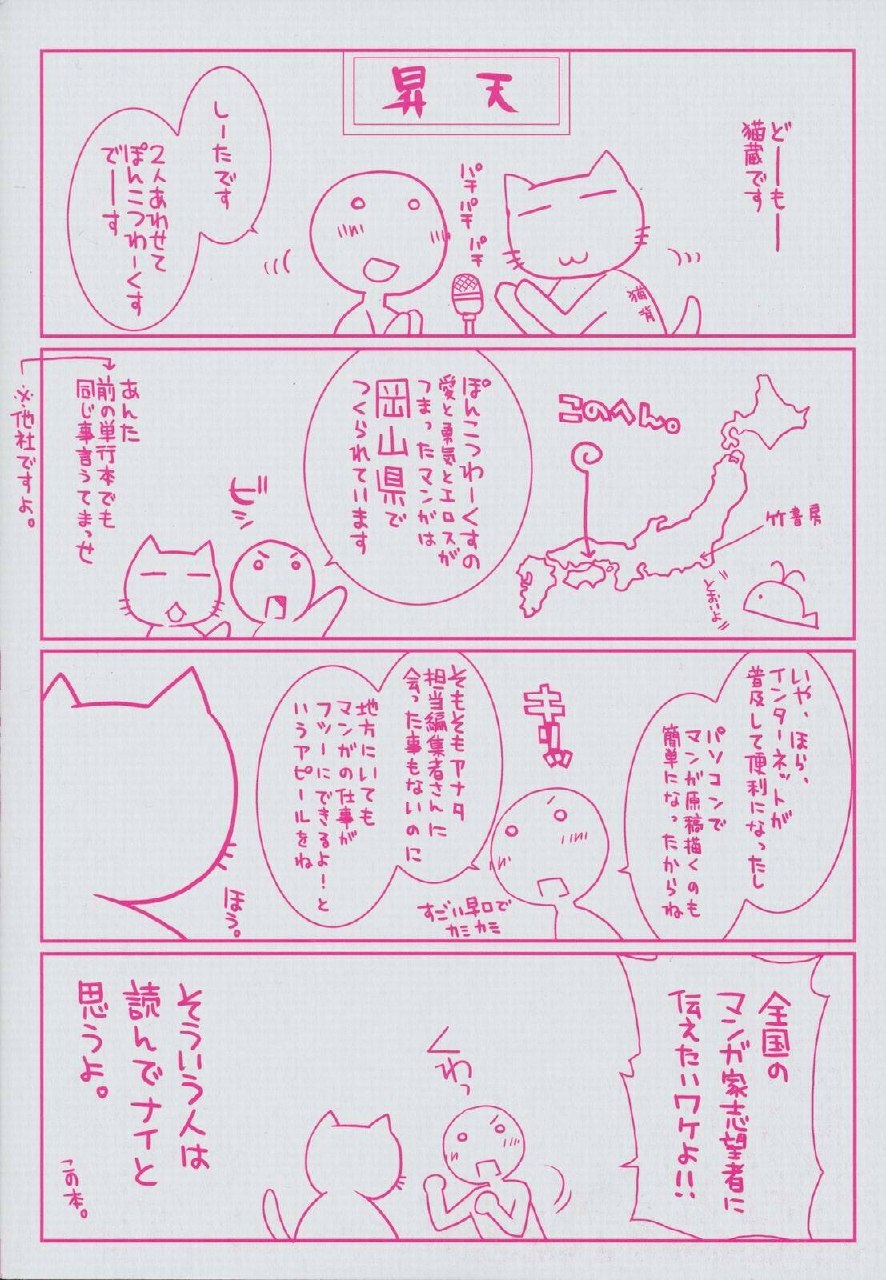 昇天
どーもー
猫蔵です
パチ
パチ
パチ
パチ
猫背
しーたです
2人あわせて
ぽんこつわーくす
でーす
このへん。
竹書房
とおいよ
ぽんこつわーくすの
愛と勇気とエロスが
つまったマンガは
岡山県で
つくられています
ビシ
あんた
前の単行本でも
同じ事言うてまっせ
※他社ですよ。
いや、ほら、
インターネットが
普及して便利になったし
パソコンで
マンガ原稿描くのも
簡単になったからね
キリッ
すごい早口で
カミカミ
そもそもアナタ
担当編集者さんに
会った事もないのに
地方にいても
マンガの仕事が
フツーにできるよ!と
いうアピールをね
ほう。
全国の
マンガ家志望者に
伝えたいワケよ!!
くわっ
そういう人は
読んでナイと
思うよ。
この本。